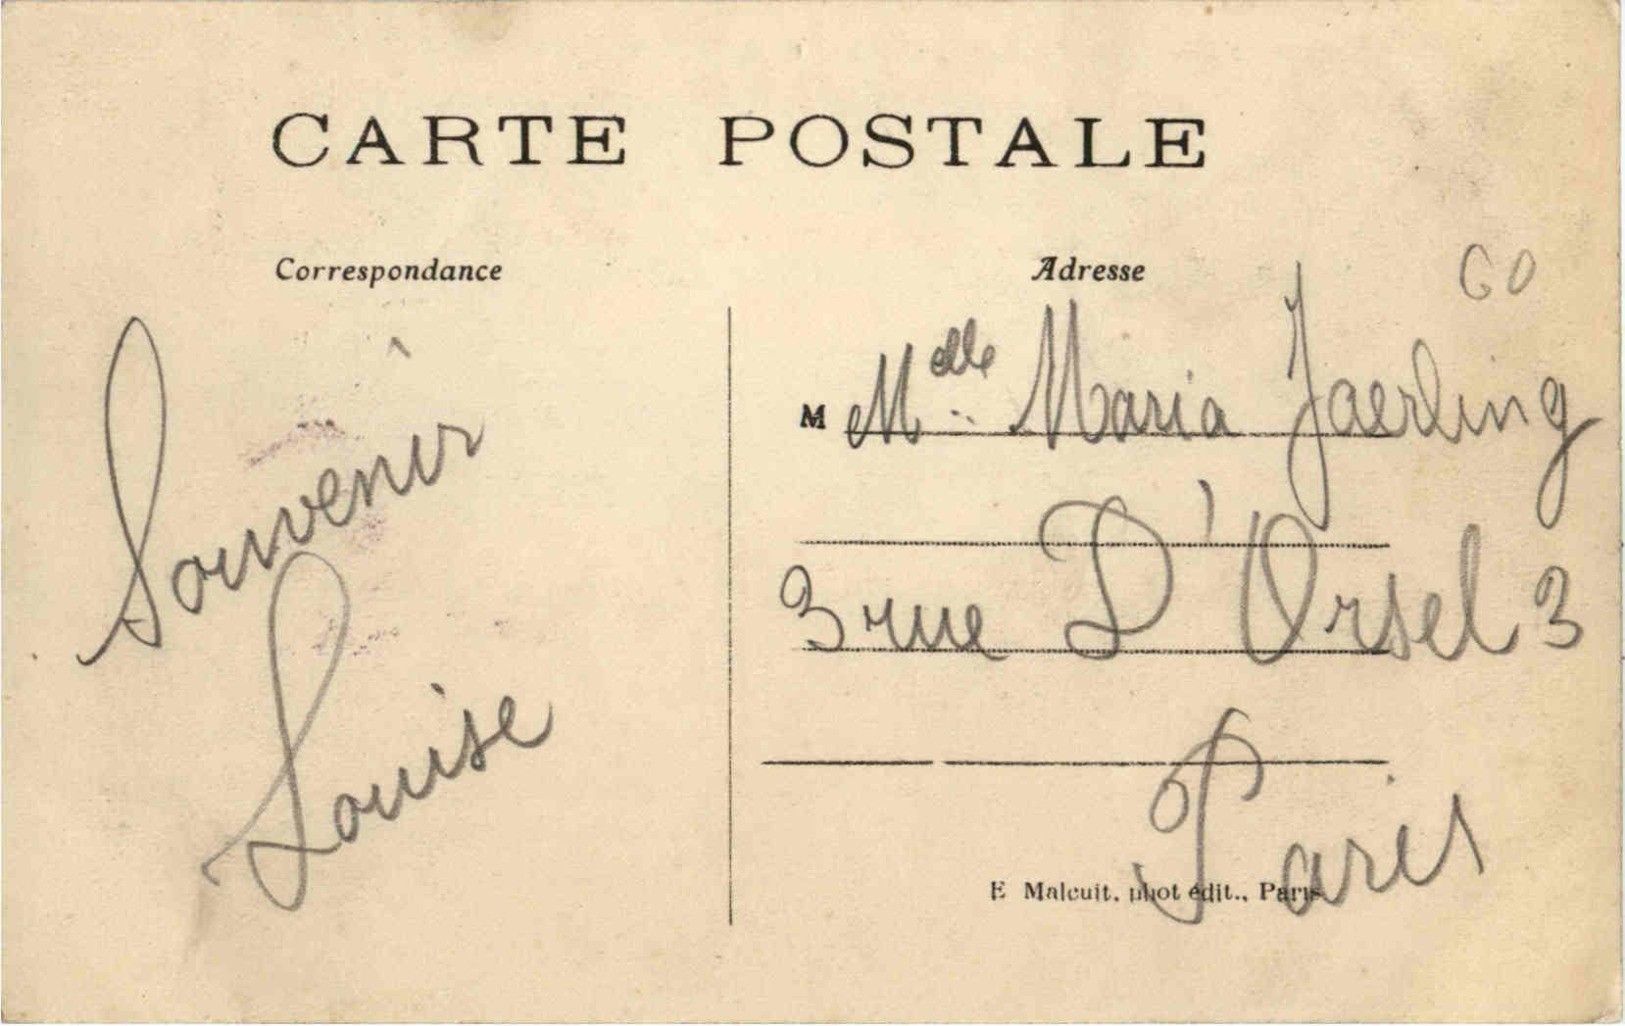 CARTE POSTALE
Correspondance
Adresse
60
Souvenir
Louise
M Melle Maria Jaerling
3 rue D'Orsel 3
Paris
E Malcuit, phot édit., Paris